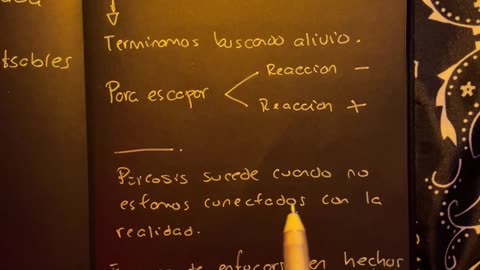 tsables
Terminamos buscado alivio.
Para escapar
Reaccion -
Reaccion +
Psicosis sucede cuando no
estamos conectados con la
realidad.
de enfocar en hechos